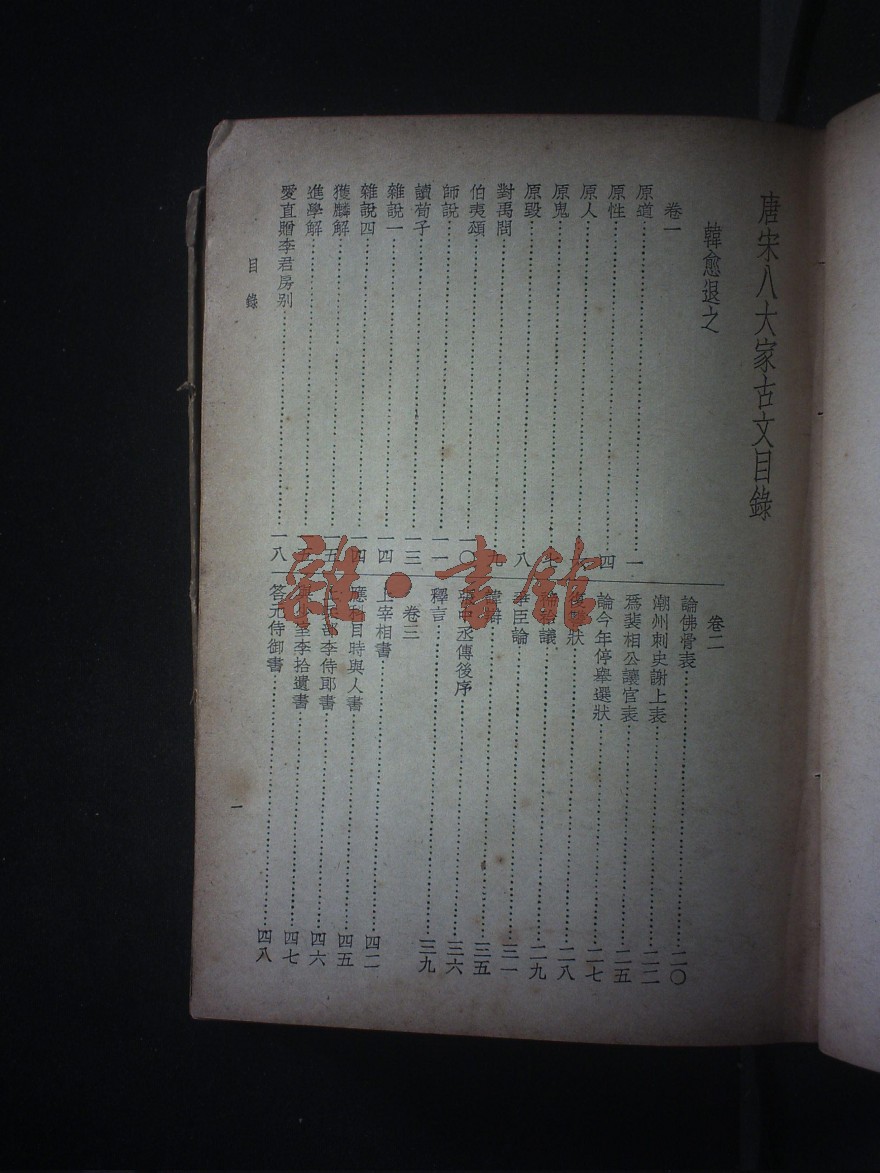 唐宋八大家古文目錄
韓愈退之
卷一
原道……一
原性……四
原人……
原鬼……七
原毀……八
對禹問……九
伯夷頌……一〇
師說……一一
讀荀子……一三
雜說一……一四
雜說四……一四
獲麟解……一五
進學解……
愛直贈李君房别……一八
卷二
論佛骨表……二〇
潮州刺史謝上表……二二
爲裴相公讓官表……二五
論今年停舉選狀……二七
復讐狀……二八
議……二九
爭臣論……三一
諱辯……三五
中丞傳後序……三六
釋言……三九
卷三
上宰相書……四二
應科目時與人書……四五
上兵部李侍郎書……四六
與少室李拾遺書……四七
答元侍御書……四八
目錄
一
雜·書館